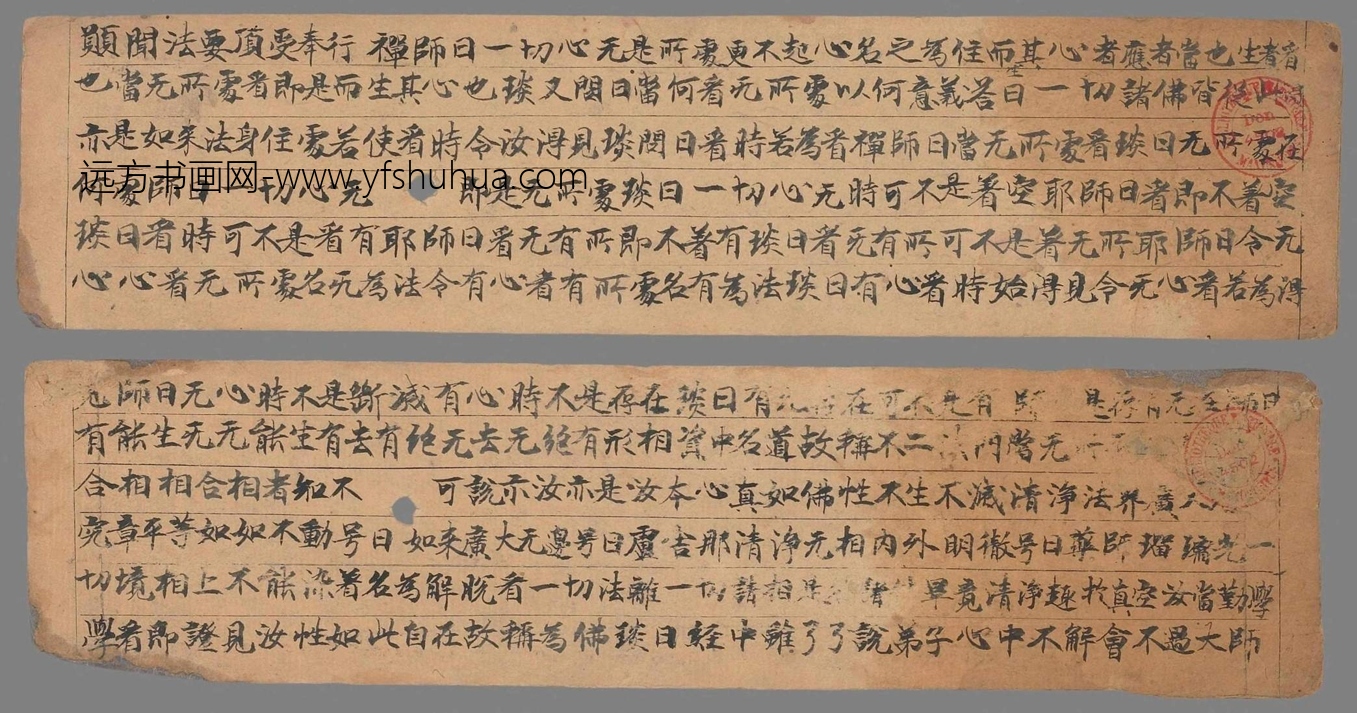 顯聞法要頂受奉行 禪師曰一切心无是所處更不起心名之為住而其心者應者當也生者看
也當无所處看即是而生其心也琰又問曰當何看无所處以何意義答曰一切諸佛皆從
亦是如来法身住處若使看時令汝得見琰問曰看時若為看禪師曰當无所處看琰曰无所處在
远方书画网-www.yfshuhua.com
何處師曰一切心无 即是无所處琰曰一切心无時可不是著空耶師曰看即不著空
琰曰看時可不是看有耶師曰看无有所即不著有琰曰看无有所可不是著无所耶師曰令无
心心看无所處名无為法令有心看有所處名有為法琰曰有心看時始得見令无心看若為得
見師曰无心時不是斷滅有心時不是存在琰曰有 在可不是有 是存 无 師曰
有能生无无能生有去有絕无去无絕有形相資中名道故稱不二法門當无
合相相合相者知不 可說亦汝亦是汝本心真如佛性不生不滅清淨法界廣大
究章平等如如不動号曰如来廣大无邊号曰盧舍那清淨无相内外明徹号曰藥師瑠璃光一
切境相上不能染著名為解脫看一切法離一切諸相是 諸 畢竟清淨趣扵真空汝當勤學
學看即證見汝性如此自在故稱為佛琰曰經中雖了了說弟子心中不解會不過大師